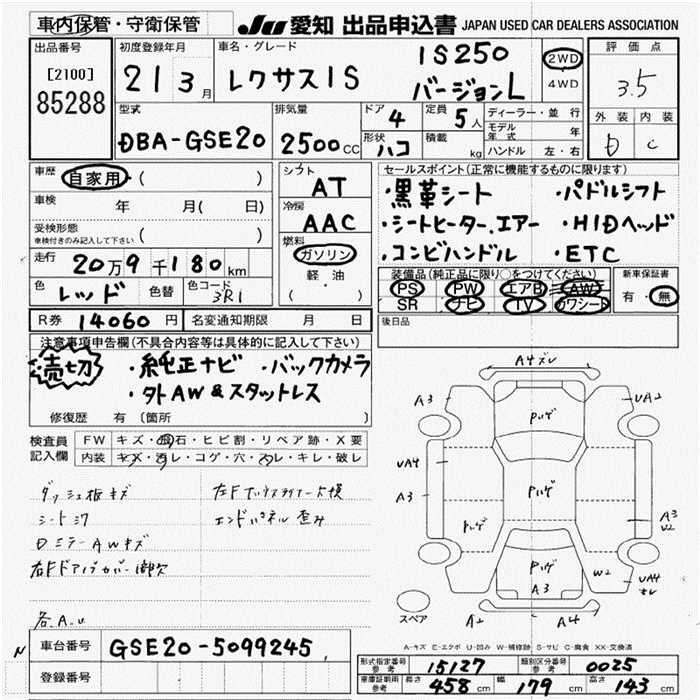 車内保管・守衛保管
JU 愛知 出品申込書 JAPAN USED CAR DEALERS ASSOCIATION
出品番号
[2100]
85288
初度登録年月
21 3月
車名・グレード
レクサスIS
IS250
バージョンL
2WD
4WD
評価点
3.5
外装 内装
D C
型式
DBA-GSE20
排気量
2500cc
ドア 4
定員 5人
形状 ハコ
積載 kg
ディーラー・並行
モデル年式 年
ハンドル 左・右
車歴 自家用 ( )
車検 年 月( 日)
受検形態
車検付きのみ記入して下さい ( )
走行 20万9千180km
色 レッド 色替 色コード 3R1
シフト
AT
冷房
AAC
燃料
ガソリン
軽油
( )
セールスポイント(正常に機能するものに限ります)
・黒革シート ・パドルシフト
・シートヒーター、エアー ・HIDヘッド
・コンビハンドル ・ETC
装備品(純正品に限り○をつけてください)
PS PW エアB AW
SR ナビ TV カワシート
新車保証書
有・無
R券 14060円 名変通知期限 月 日
後日品
注意事項申告欄(不具合内容等は具体的に記入して下さい)
売切 ・純正ナビ ・バックカメラ
・外AW&スタットレス
修復歴 有 〔箇所 〕
検査員記入欄
FW キズ・飛石・ヒビ割・リペア跡・X要
内装 キズ・汚レ・コゲ・穴・スレ・キレ・破レ
ダッシュ板キズ
シートシワ
DミラーAWキズ
各A.U
エンドパネル歪み
A4ズレ
A3
UA2
ハゲ
UA4
A3
ハゲ
ハゲ
A3
W2
ハゲ
A3
W2
UA4
スペア
A2
A4
A-キズ E-エクボ U-凹み W-補修跡 S-サビ C-腐食 XX-交換済
N
車台番号 GSE20-5099245
登録番号
形式指定番号 参考 15127 類別区分番号 参考 0025
車庫証明用 参考 長さ 458cm 幅 179cm 高さ 143cm